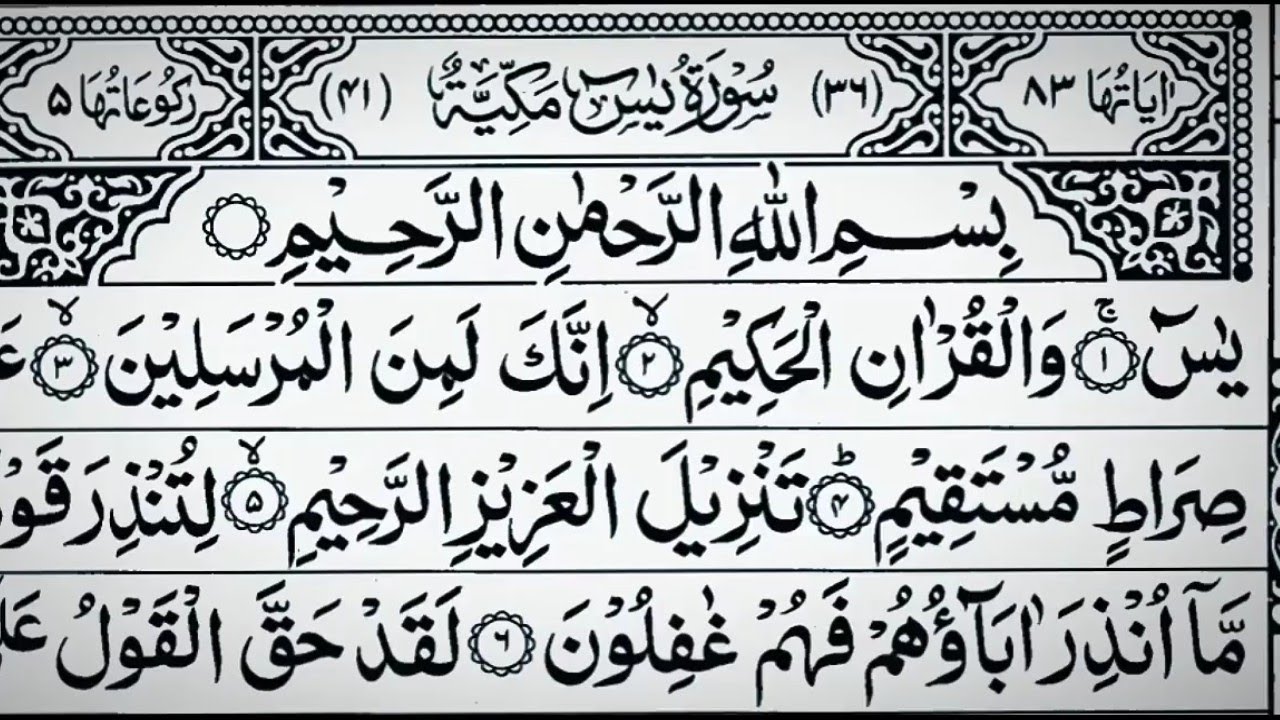 اٰیَاتُهَا ٨٣ (٣٦) سُوْرَةُ یٰسٓ مَكِّیَّةٌ (٤١) رُكُوْعَاتُهَا ٥
بِسْمِ اللّٰهِ الرَّحْمٰنِ الرَّحِیْمِ
یٰسٓ ۚ‏ ١ وَالْقُرْاٰنِ الْحَكِیْمِ ۙ‏ ٢ اِنَّكَ لَمِنَ الْمُرْسَلِیْنَ ۙ‏ ٣
صِرَاطٍ مُّسْتَقِیْمٍ ؕ‏ ٤ تَنْزِیْلَ الْعَزِیْزِ الرَّحِیْمِ ۙ‏ ٥ لِتُنْذِرَ
مَّاۤ اُنْذِرَ اٰبَآؤُهُمْ فَهُمْ غٰفِلُوْنَ ٦ لَقَدْ حَقَّ الْقَوْلُ